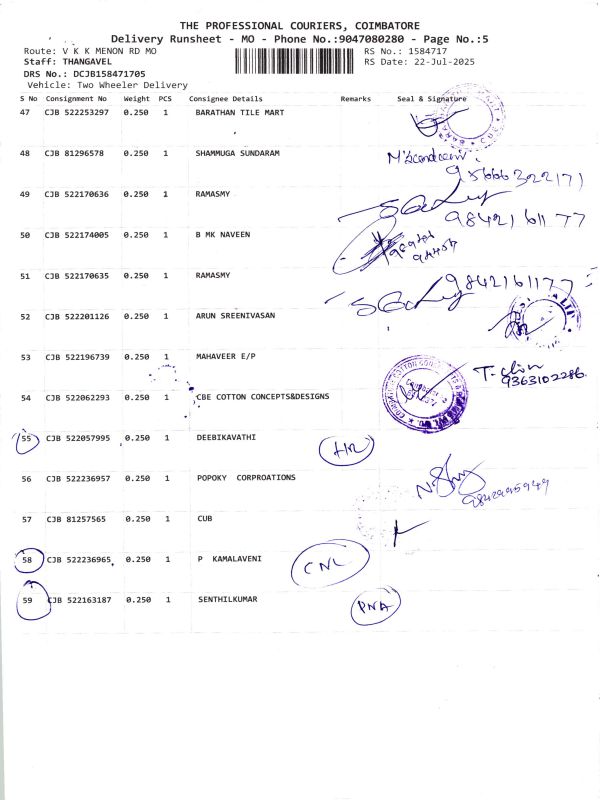 THE PROFESSIONAL COURIERS, COIMBATORE
Delivery Runsheet - MO - Phone No.:9047080280 - Page No.:5
Route: V K K MENON RD MO RS No.: 1584717
Staff: THANGAVEL RS Date: 22-Jul-2025
DRS No.: DCJB158471705
Vehicle: Two Wheeler Delivery
S No Consignment No Weight PCS Consignee Details Remarks Seal & Signature
47 CJB 522253297 0.250 1 BARATHAN TILE MART
48 CJB 81296578 0.250 1 SHAMMUGA SUNDARAM
49 CJB 522170636 0.250 1 RAMASMY
9842161177
50 CJB 522174005 0.250 1 B MK NAVEEN
51 CJB 522170635 0.250 1 RAMASMY 9842161177
52 CJB 522201126 0.250 1 ARUN SREENIVASAN
53 CJB 522196739 0.250 1 MAHAVEER E/P
9363102286
54 CJB 522062293 0.250 1 CBE COTTON CONCEPTS&DESIGNS
55 CJB 522057995 0.250 1 DEEBIKAVATHI
56 CJB 522236957 0.250 1 POPOKY CORPROATIONS
57 CJB 81257565 0.250 1 CUB
58 CJB 522236965 0.250 1 P KAMALAVENI CNL
59 CJB 522163187 0.250 1 SENTHILKUMAR PNA